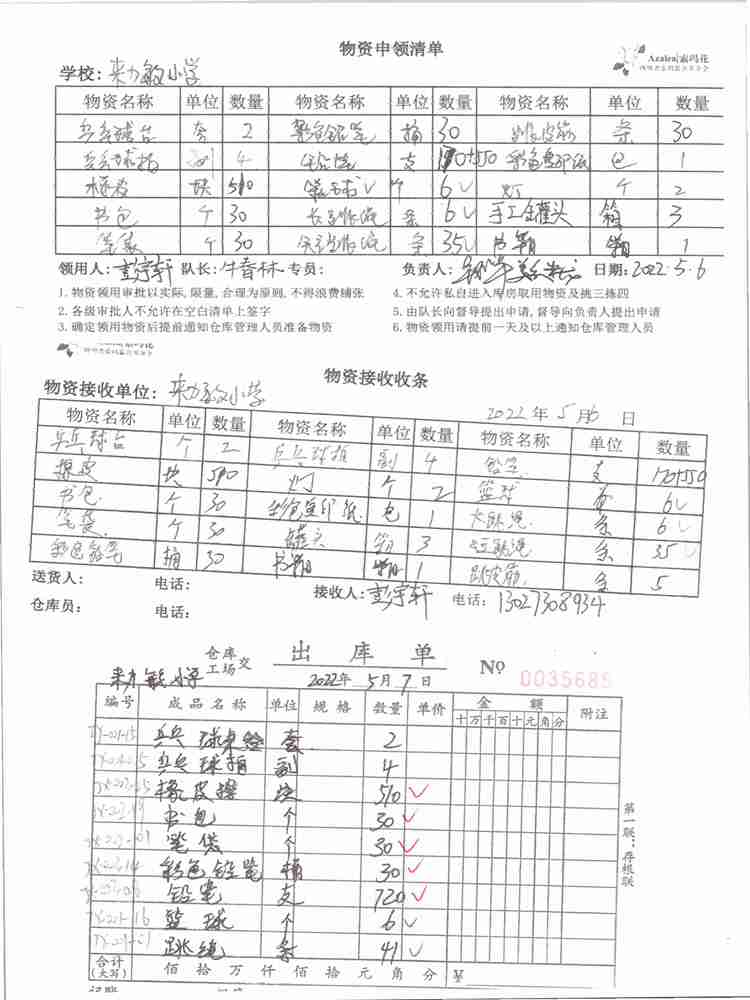 物资申领清单
Azalea|索玛花
学校: 来力敏小学
物资名称 单位 数量 物资名称 单位 数量 物资名称 单位 数量
乒乓球台 套 2 彩色铅笔 桶 30 跳皮筋 条 30
乒乓球拍 副 4 铅笔 支 170+550 彩色复印纸 包 1
橡皮 块 510 篮球√ 个 6√ 灯 个 2
书包 个 30 长跳绳 条 6√ 手工罐头 箱 3
笔袋 个 30 短跳绳 条 35√ 书籍 箱 1
领用人: 彭宇轩 队长: 牛春林 专员: 负责人: 日期: 2022.5.6
1. 物资领用审批以实际, 限量, 合理为原则, 不得浪费铺张 4. 不允许私自进入库房取用物资及挑三拣四
2. 各级审批人不允许在空白清单上签字 5. 由队长向督导提出申请, 督导向负责人提出申请
3. 确定领用物资后提前通知仓库管理人员准备物资 6. 物资领用请提前一天及以上通知仓库管理人员
Azalea|索玛花
物资接收收条
物资接收单位: 来力敏小学 2022年 5月6日
物资名称 单位 数量 物资名称 单位 数量 物资名称 单位 数量
乒乓球台 个 2 乒乓球拍 副 4 铅笔 支 170+550
橡皮 块 510 灯 个 2 篮球 个 6√
书包 个 30 彩色复印纸 包 1 长跳绳 条 6√
笔袋 个 30 罐头 箱 3 短跳绳 条 35√
彩色铅笔 桶 30 书籍 箱 1 跳皮筋 条 5
送货人: 电话: 接收人: 彭宇轩 电话: 13027308934
仓库员: 电话:
仓库 工场 交 出库单
来力敏小学 2022年 5月 7日 № 0035685
编号 成品名称 单位 规格 数量 单价 金额 附注
十 万 千 百 十 元 角 分
乒乓球桌台 套 2
乒乓球拍 副 4
橡皮擦 块 510 √
书包 个 30 √
笔袋 个 30 √
彩色铅笔 桶 30 √
铅笔 支 720 √
篮球 个 6 √
跳绳 条 41 √
第一联:存根联
合计(大写) 佰 拾 万 仟 佰 拾 元 角 分 ¥